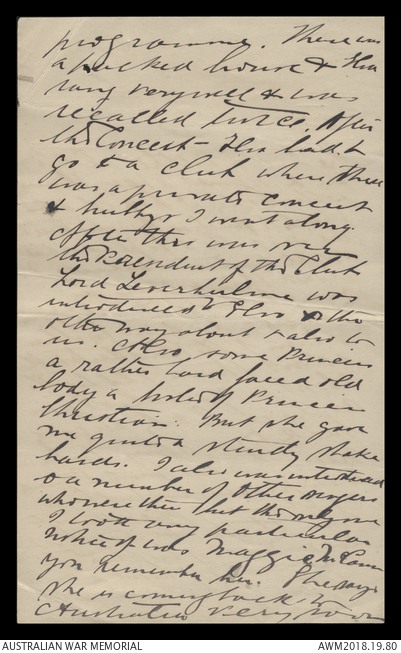 programme. There was
a packed house & Elsa
sang very well & was
recalled twice. After
the Concert – Elsa had to
go to a Club where there
was a private concert
& hubby & I went along.
After this was over
the President of the Club
Lord Leverhulme was
introduced to Elsa & the
other way about & also to
us. Also some Princess
a rather hard faced old
body a sister of Prince
Christian. But she gave
me quite a sturdy shake
hands. I also was introduced
to a number of other singers
who were there but the only one
I took any particular
notice of was Maggie
you remember her. She says
she is coming back to
Australia very soon
AUSTRALIAN WAR MEMORIAL
AWM2018.19.80